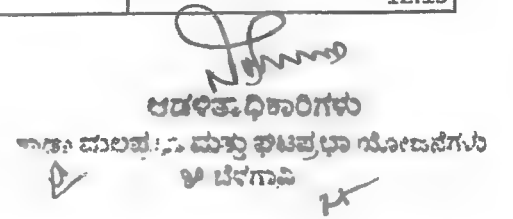 12.15
ಆಡಳಿತಾಧಿಕಾರಿಗಳು
ಕಾಡಾ ಮಲಪ್ರಭಾ ಮತ್ತು ಘಟಪ್ರಭಾ ಯೋಜನೆಗಳು
ಬೆಳಗಾವಿ